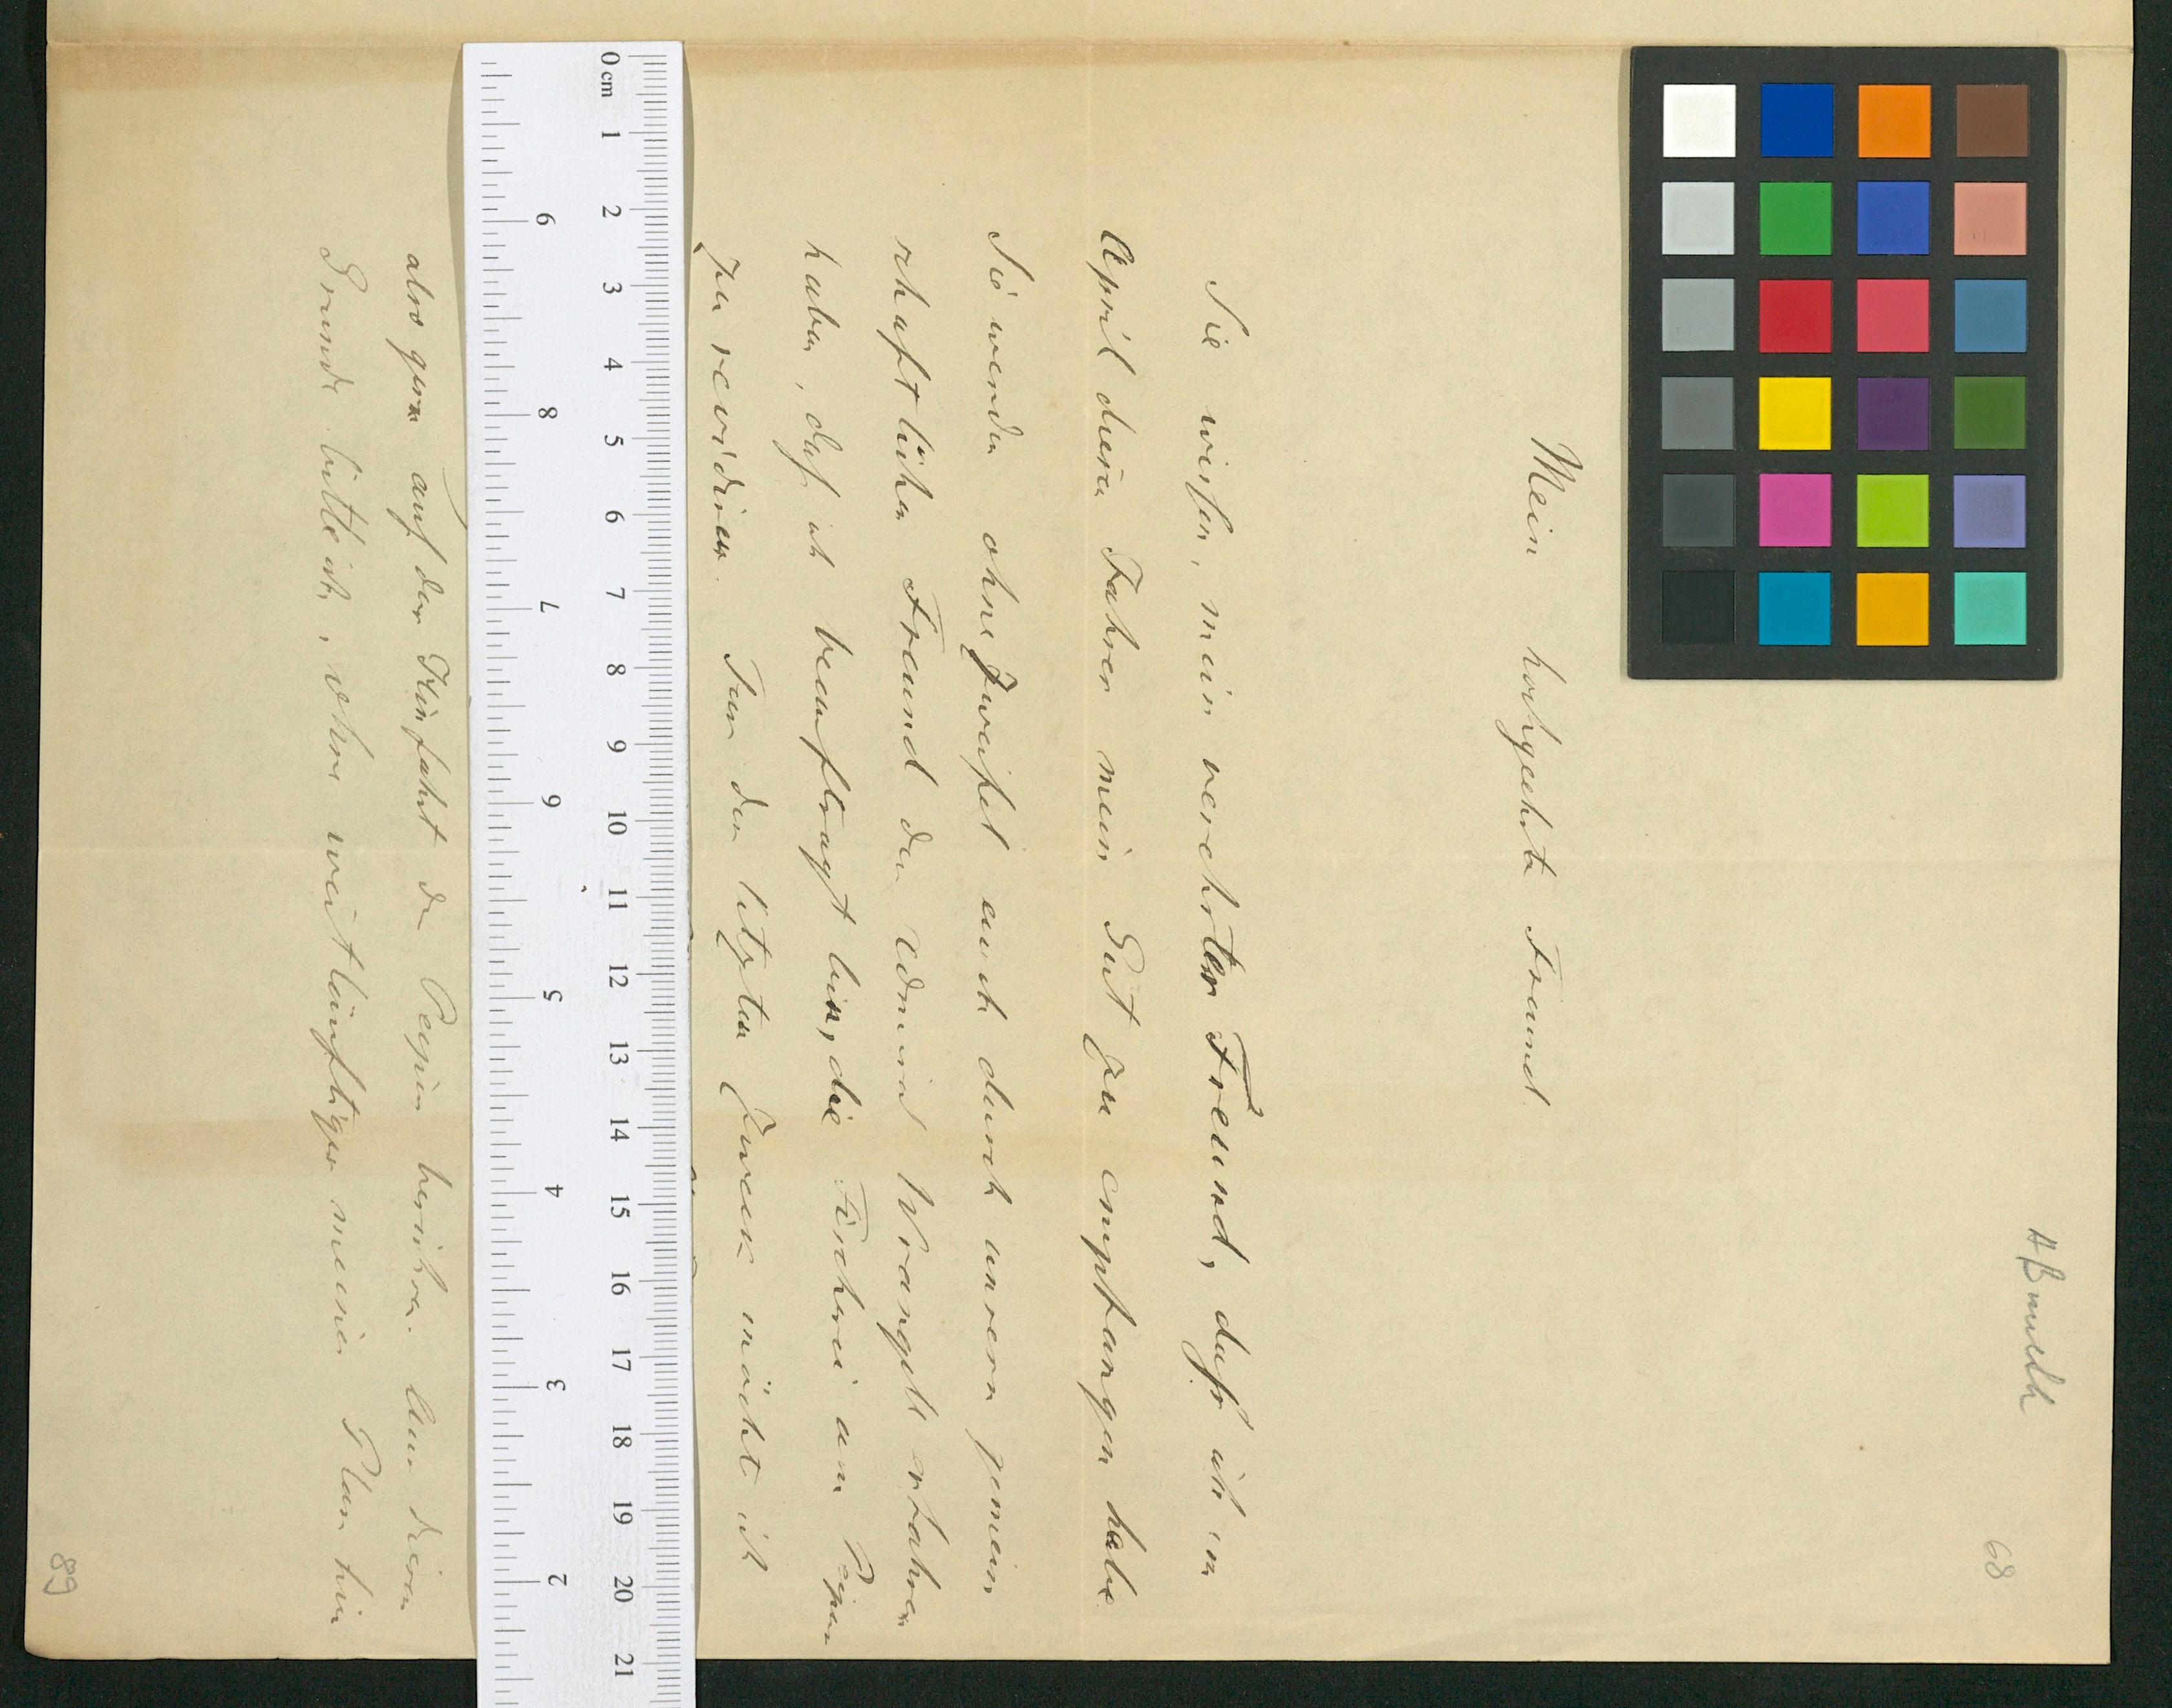 ABmschk
68
Mein hochgeehrter Freund.
Sie wissen, mein verehrter Freund, daß ich im
April dieses Jahres mein Gut zu empfangen habe.
Sie werden ohne Zweifel auch durch unseren gemein
schaftlichen Freund den Admiral Wrangell erfahren
haben, daß ich beauftragt bin, die Fischerei am Peipus
zu revidiren. Zu den letzten Zweck möcht ich
also gern auf der Hinfahrt den Peipus berühren. Aus diesem
Grunde bitte ich, ohne weitläuftiger meinen Plan hier
89
0 cm 1 2 3 4 5 6 7 8 9 10 11 12 13 14 15 16 17 18 19 20 21
2 3 4 5 6 7 8 9